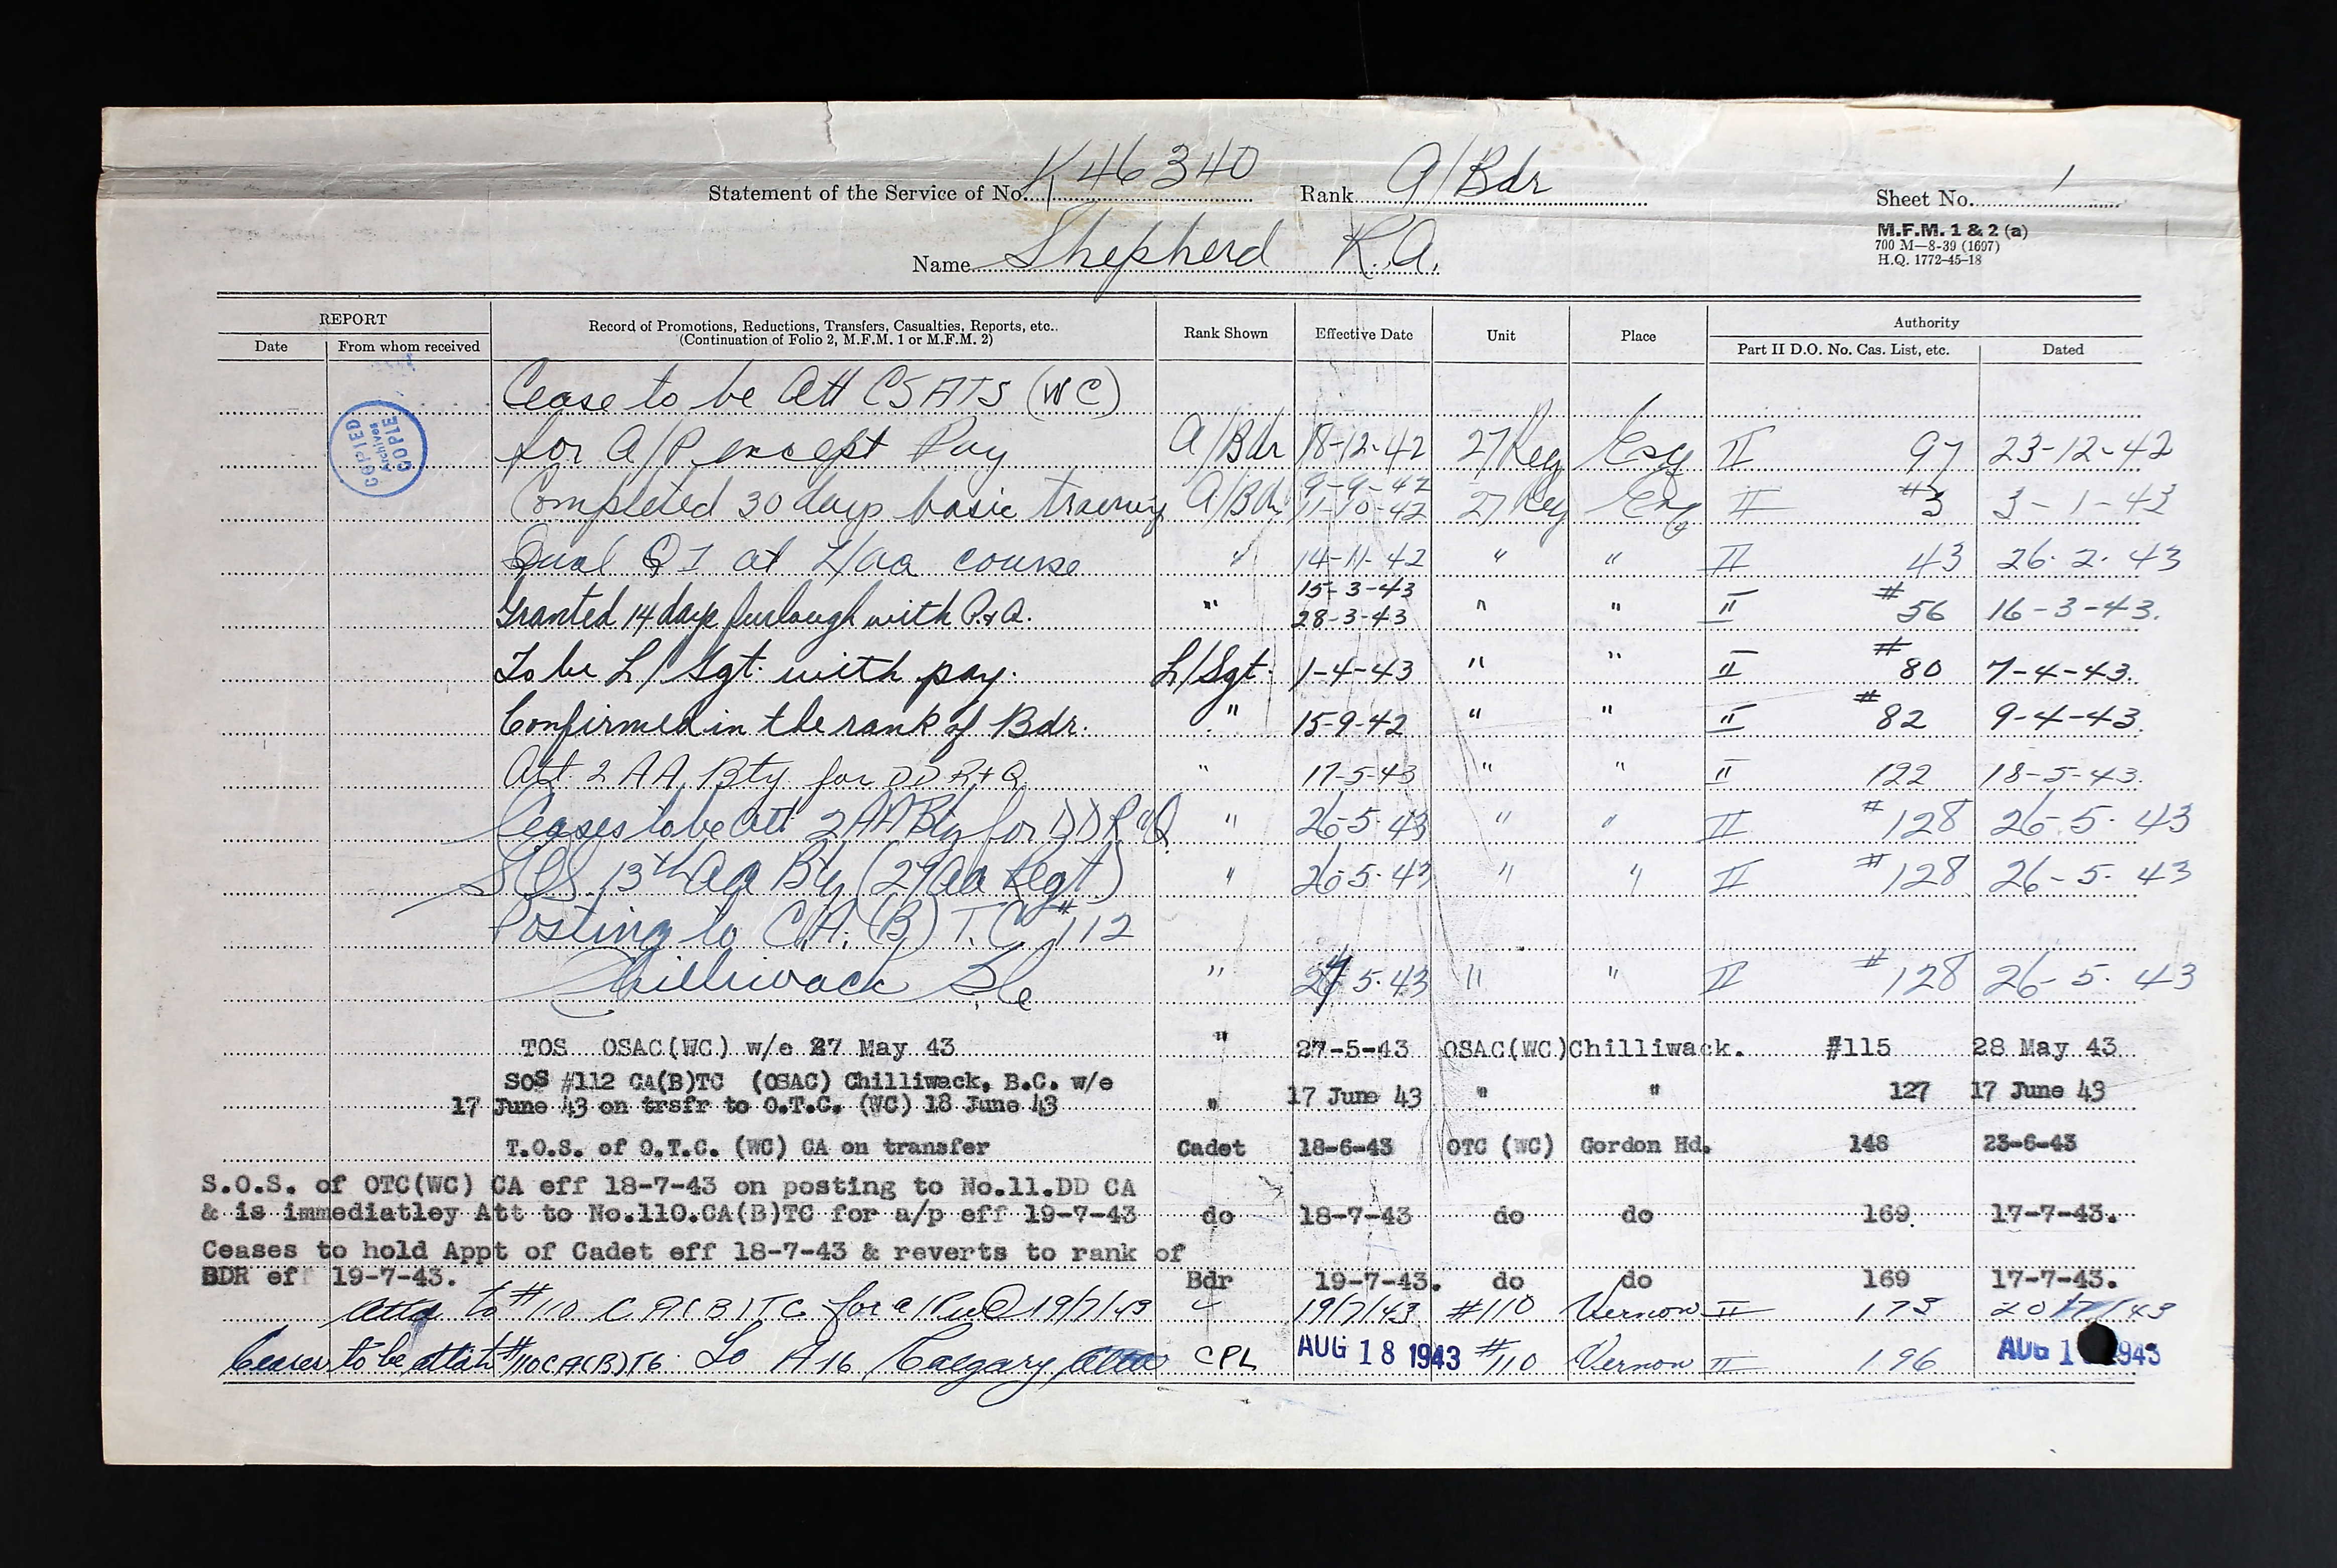 Statement of the Service of No. K46340 Rank A/Bdr Sheet No. 1
M.F.M. 1 & 2 (a)
700 M—8-39 (1697)
H.Q. 1772-45-18
Name Shepherd R.A.
REPORT
Date From whom received
Record of Promotions, Reductions, Transfers, Casualties, Reports, etc..
(Continuation of Folio 2, M.F.M. 1 or M.F.M. 2)
Rank Shown Effective Date Unit Place
Authority
Part II D.O. No. Cas. List, etc. Dated
COPIED
Archives
COPIE
Cease to be Att CSATS (WC)
for A/P except Pay A/Bdr 18-12-42 27 Reg Esq II 97 23-12-42
Completed 30 days basic training A/Bdr 9-9-42 11-10-42 27 Reg Esq II #3 3-1-43
Qual Q I at L/aa course " 14-11-42 " " II 43 26.2.43
Granted 14 days furlough with R.&Q. " 15-3-43 28-3-43 " " II #56 16-3-43.
To be L/Sgt. with pay. L/Sgt. 1-4-43 " " II #80 7-4-43.
Confirmed in the rank of Bdr. " 15-9-42 " " II #82 9-4-43.
Att. 2 AA Bty for DD R+Q " 17-5-43 " " II 122 18-5-43.
Ceases to be att 2 AA Bty for DD R&Q " 26-5-43 " " II #128 26-5-43
SOS 13th aa Bty (27 aa Regt) " 26-5-43 " " II #128 26-5-43
Posting to C.A.(B) T.C. #112
Chilliwack Bc " 27-5-43 " " II #128 26-5-43
TOS OSAC(WC) w/e 27 May 43 " 27-5-43 OSAC(WC) Chilliwack. #115 28 May 43
SOS #112 CA(B)TC (OSAC) Chilliwack, B.C. w/e
17 June 43 on trsfr to O.T.C. (WC) 18 June 43 " 17 June 43 " " 127 17 June 43
T.O.S. of O.T.C. (WC) CA on transfer Cadet 18-6-43 OTC (WC) Gordon Hd. 148 23-6-43
S.O.S. of OTC(WC) CA eff 18-7-43 on posting to No.11.DD CA
& is immediatley Att to No.110.CA(B)TC for a/p eff 19-7-43 do 18-7-43 do do 169. 17-7-43.
Ceases to hold Appt of Cadet eff 18-7-43 & reverts to rank of
BDR eff 19-7-43. Bdr 19-7-43. do do 169 17-7-43.
Attd to #110 C A(B)TC for 19/7/43 " 19/7/43 #110 Vernon II 173 20/7/43
Ceases to be #110 CA(B)TC To A16 Calgary Alta CPL AUG 18 1943 #110 Vernon II 196 AUG 1 943